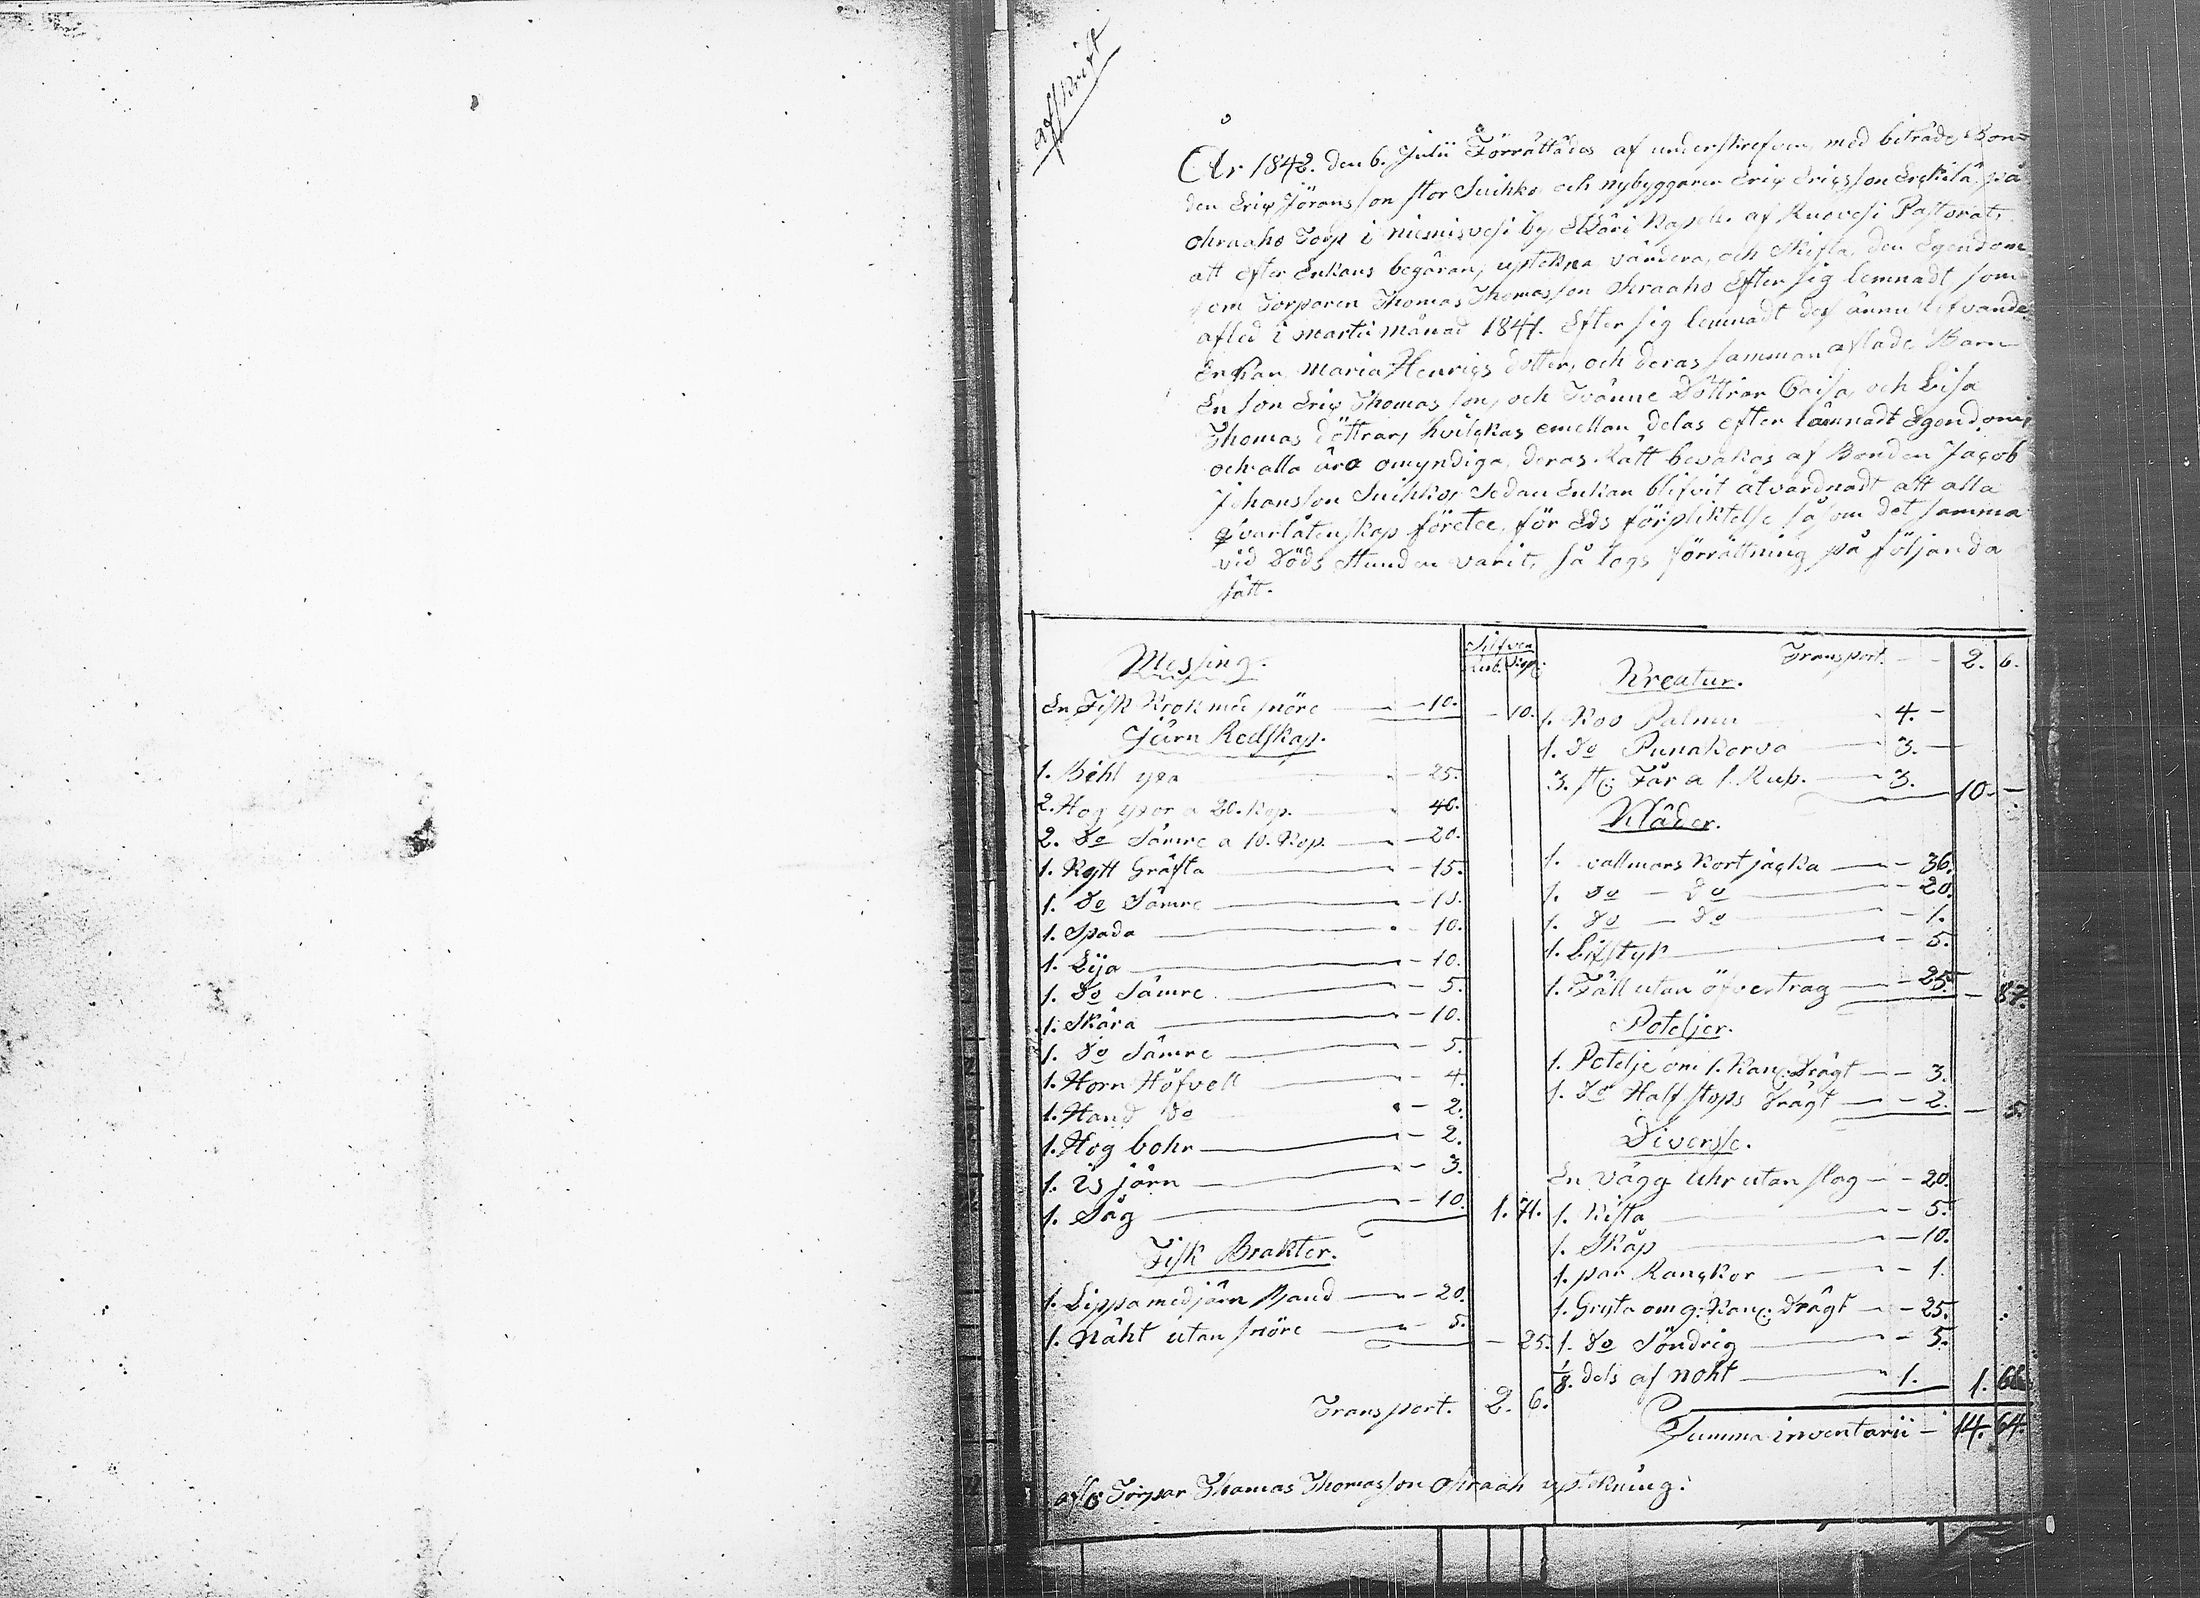 afskrift
År 1842. den 6. Julii Förrättades af underskrefven, med biträde Bon-
den Eriq Jöransson stor Suihko och nybyggaren Eriq Eriqsson Erqkilä på
Ohraaho Torp i Niemisvesi by, Etzäri Kapell af Ruovesi Pastorat,
att efter Enkans begäran, uptekna värdera, och skifta, den Egendom
som Torparen Thomas Thomasson Ohraaho Efter sig lemnadt som
afled i Martii månad 1841. Efter sig lemnadt dess ännu lefvande
Enkan Maria Henriqs dotter, och deras samman aflade Barn
En son Eriq Thomas son, och Tvänne Döttrar Caisa, och Lisa
Thomas döttrar, hvilqkas emellan delas efter lämnadt Egendom,
och alla äro omyndiga, deras Rätt bevakas af Bonden Jaqob
Johansson Suihko, Sedan Enkan blifvit åtvardnadt att alla
qvarlåtenskap företee, för Eds förpliktelse såsom det samma
vid Döds stunden varit, så togs förrättning på följanda
sätt.
Silfver
Rub. Kop:
Messing.
En Fisk Krok med snöre — 10. — 10.
Järn Redskap.
1. Bihl yxa — 25.
2. Hog yxor a 20. Kop. — 40.
2. Do Sämre a 10. Kop. — 20.
1. Kytt Gräfta — 15.
1. Do Sämre — 10.
1. Spada — 10.
1. Lija — 10.
1. Do Sämre — 5.
1. Skära — 10.
1. Do Sämre — 5.
1. Horn Höfvell — 4.
1. Hand Do — 2.
1. Hog bohr — 2.
1. is järn — 3.
1. Såg — 10. 1. 71.
Fisk Brakter.
1. Lippa med järn Band — 20.
1. Näht utan snöre — 5. — 25.
Transport. 2. 6.
Transport. — 2. 6.
Kreatur.
1. Koo Palmu — 4. —
1. Do Punakorva — 3. —
3. st: Får a 1. Rub. — 3. 10. —
Kläder.
1. vallmars Kort jaqka — 36.
1. Do — Do — 20.
1. Do — Do — 1.
1. Lifstyk — 5.
1. Fäll utan öfvertrag — 25. — 87.
Poteljer.
1. Potelje om 1. Kan: Drägt — 3.
1. Do Half stops Drägt — 2. — 5.
Diversse.
En vägg Uhr utan slag — 20.
1. Kista — 5.
1. Skåp — 10.
1. par Kanqkor — 1.
1. Gryta om 9. Kan: Drägt — 25.
1. Do Söndrig — 5.
1/8. dels af noht — 1. 1. 66.
Summa inventarii — 14. 64.
afl: Torpar Thomas Thomasson Ohraah uptekning: